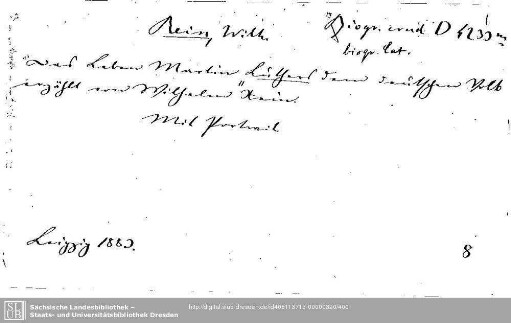 Rein, Wilh.
Biogr. erud. D
biogr. Lat.
Das Leben Martin Luthers dem deutschen Volk
erzählt von Wilhelm Rein.
Mit Portrait
Leipzig 1883.
8
Sächsische Landesbibliothek –
Staats- und Universitätsbibliothek Dresden